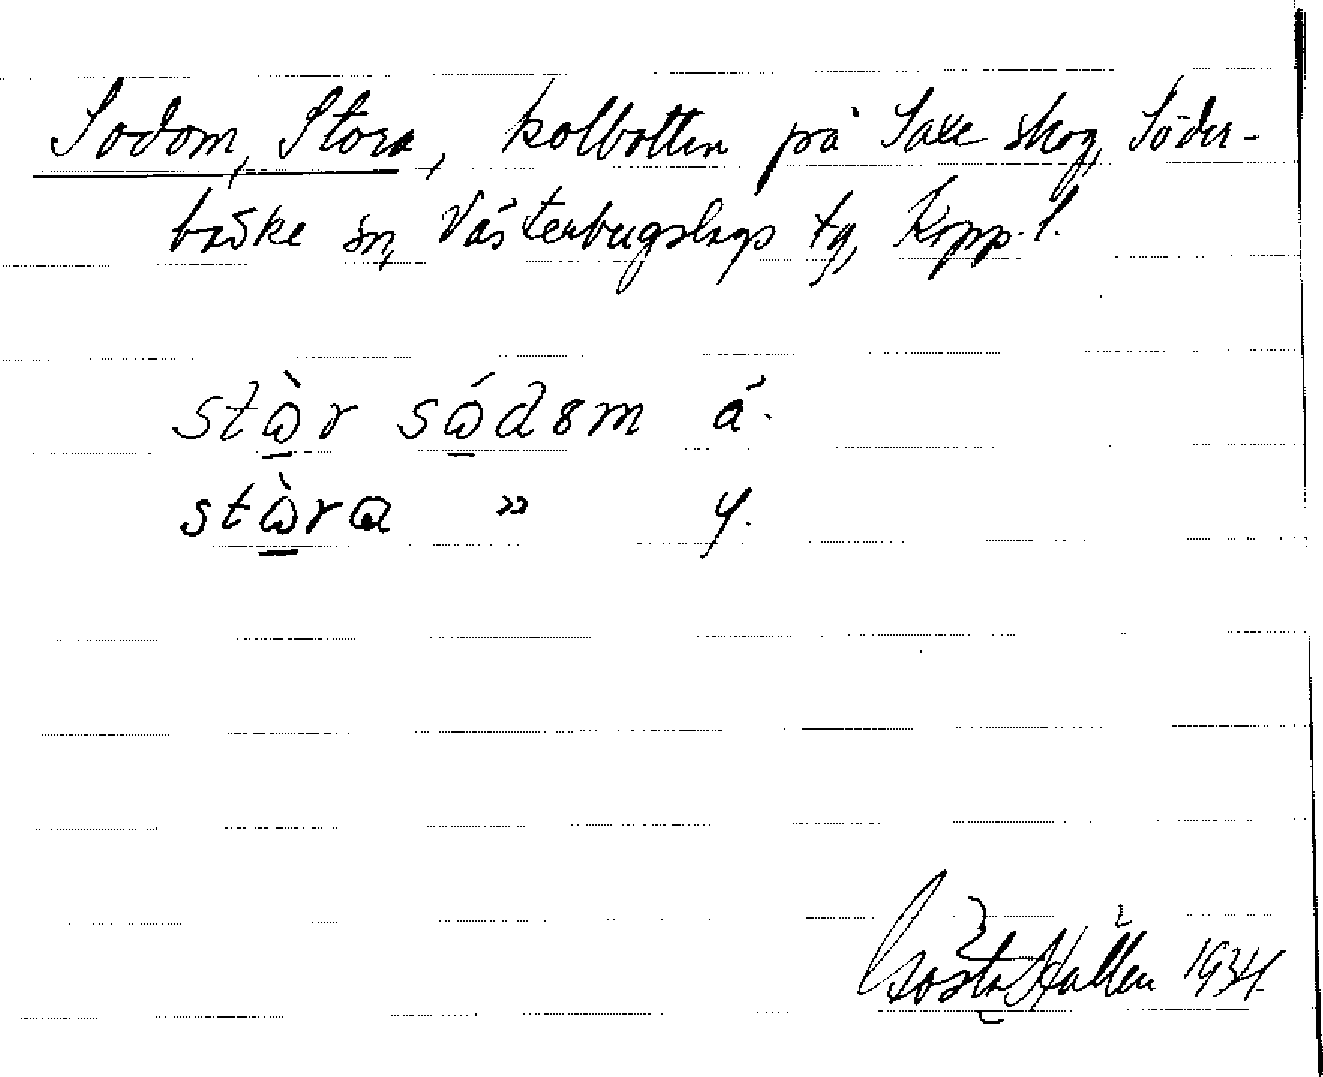 Sodom, Stora, kolbotten på Saxe skog, Söder-
bärke sn, Västerbergslags tg, Kopp. l.
stὼr sώdɞm ä.
stὼra » y.
Gösta Hallén 1934.